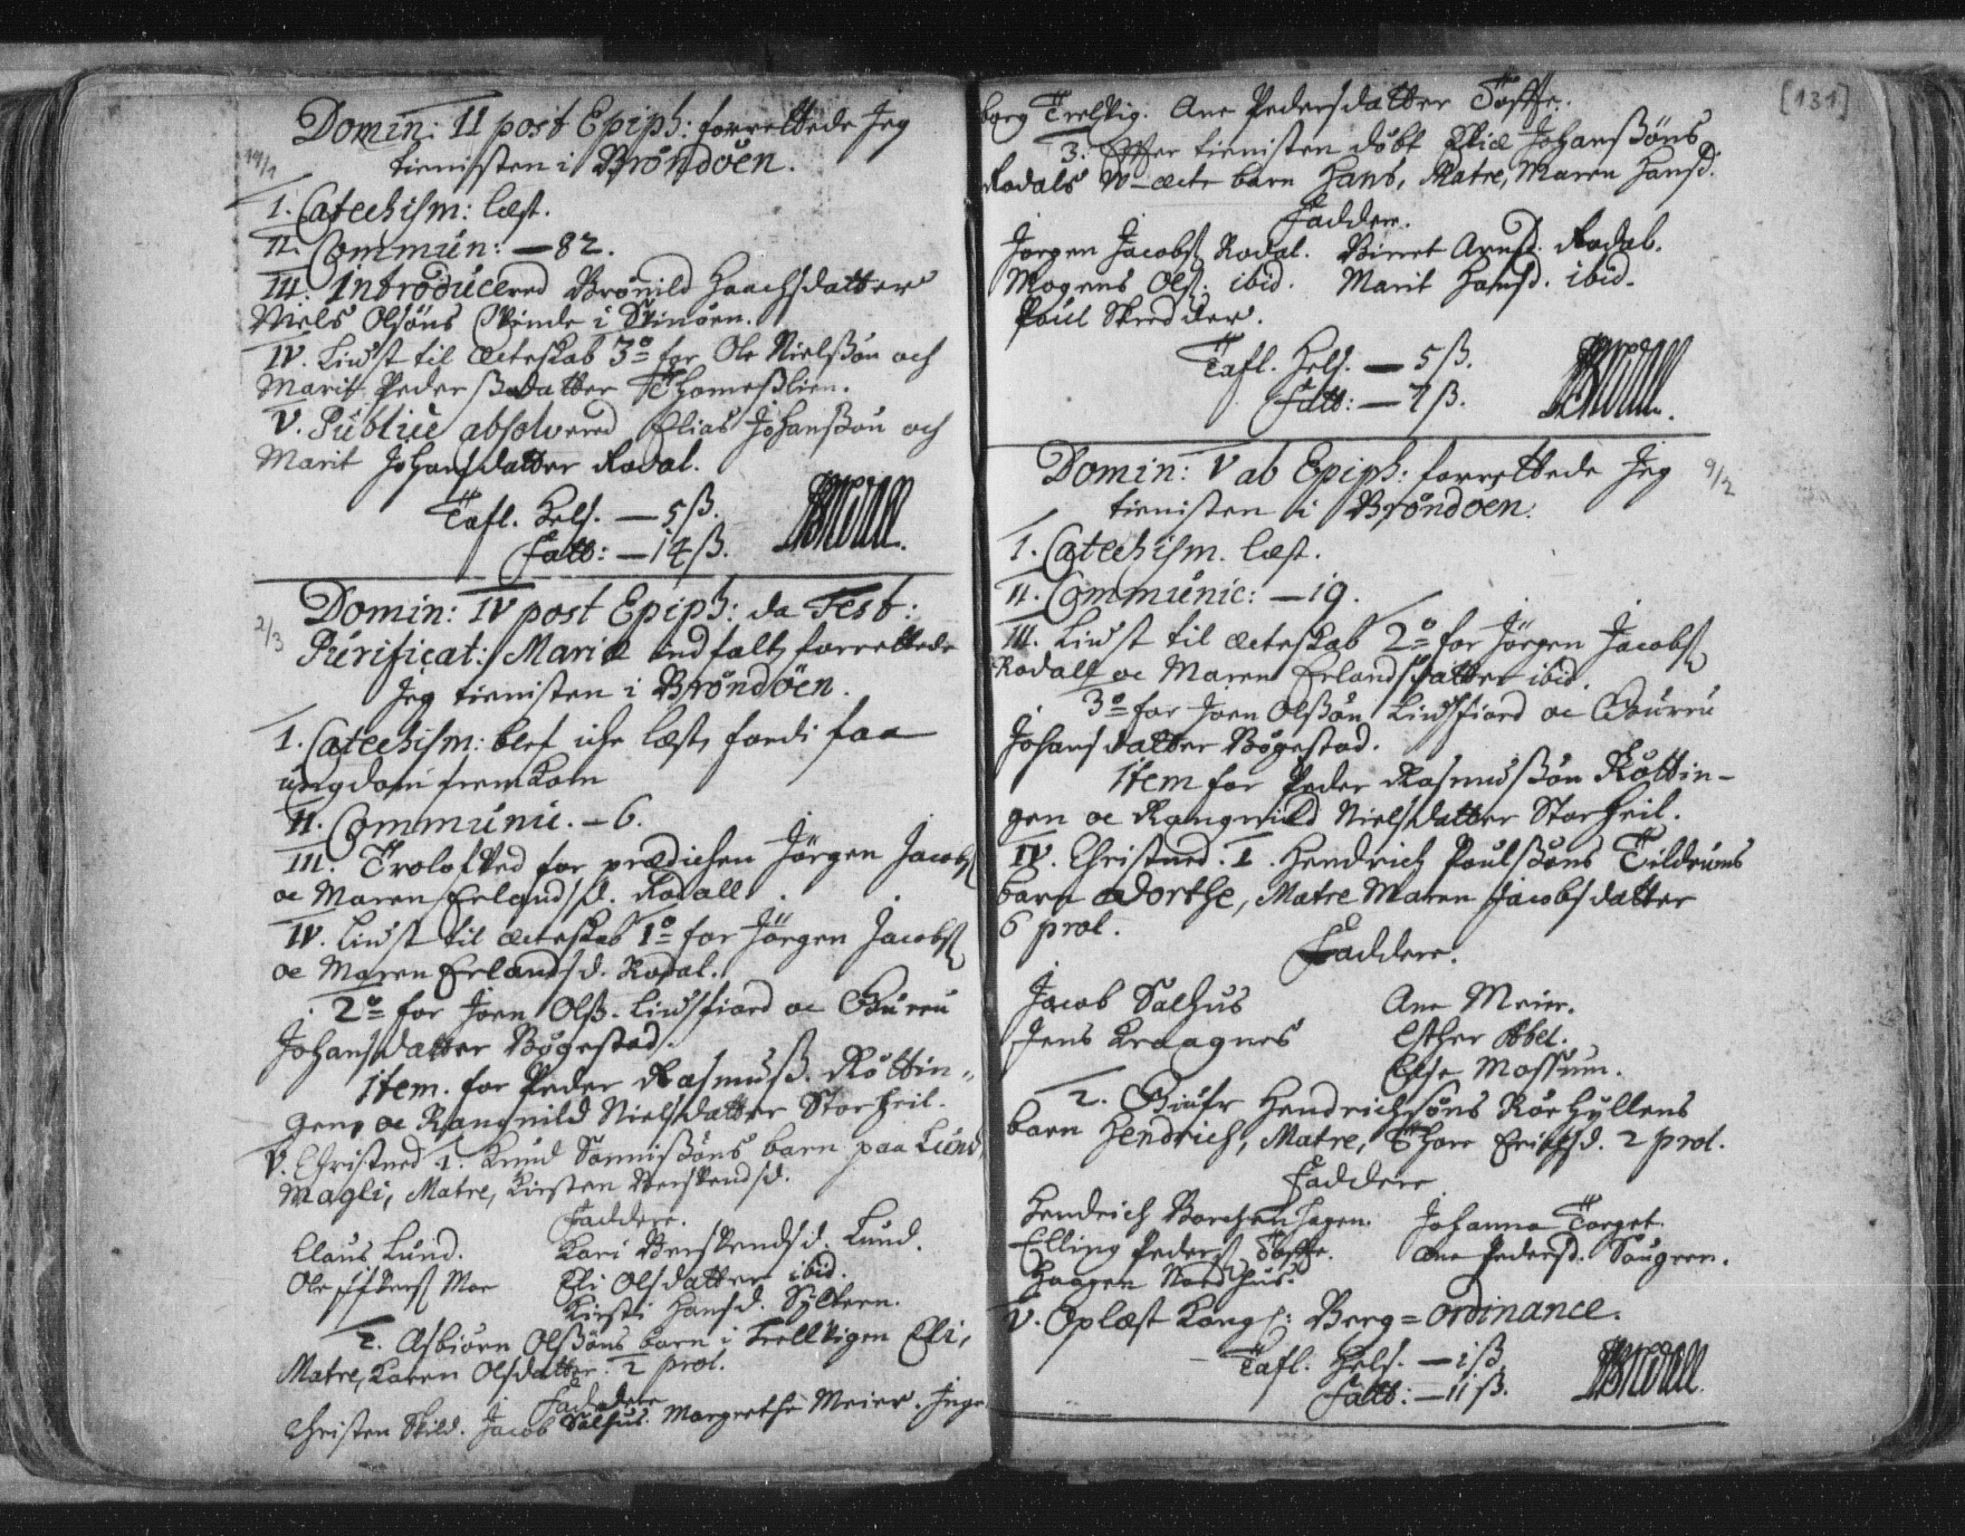 Domin: II post Epiph: forrettede Jeg
tienisten i Brøndøen.
19/1
I. Catechism: læst.
II. Commun: — 82.
III. Introducered Brønild Haachsdatter
Niels Olsøns Qvinde i
IV. Liust til Ecteskab 3º for Ole Nielsøn och
Marit Pedersdatter Thomeslien.
V. Publice absolvered Elias Johansøn och
Marit Johansdatter Rodal.
Tafl. Hels. — 5 ß.
Fatt: — 14 ß.
Domin: IV post Epiph: da Fest:
2/3
Purificat: Mariæ indfalt, forrettede
Jeg tienisten i Brøndöen.
I. Catechism: blef iche læst, fordi faa
ungdom fremkom
II. Communic. — 6.
III. Trolofved for prædichen Jörgen Jacobs
oc Maren Erlandsd. Rodall.
IV. Liust til Ecteskab 1º for Jörgen Jacobs
oc Maren Erlandsd. Rodal.
2º for Joen Olß. Liusfiord oc Guru
Johansdatter Bögestad.
Item. for Peder Rasmusß. Röttin-
gen, oc Rangnild Nielsdatter Storheil.
V. Christned 1. Knud Sønnisøns barn paa Lund,
Magli, Matre, Kirsten
Faddere.
Claus Lund. Kari Lund.
Ole Moe Eli Olsdatter ibid.
Kirsti Hansd. Syltern.
2. Asbiörn Olsøns barn i Trellvigen Eli,
Matre, Karen Olsdatter. 2 prol.
Faddere
Christen Skild. Jacob Salhus. Margrethe Meier. Inge
borg Trelvig. Ane Pedersdatter Tofte.
[131]
3. Efter tienisten döbt Elias Johansøns
Rodals U-ecte barn Hans, Matre, Maren Hansd.
Faddere.
Jørgen Jacobs Rodal. Birret Arnsd. Rodal.
Mogens Ols. ibid. Marit Hansd. ibid.
Poul Skredder.
Tafl. Hels. — 5 ß.
Fatt: — 7 ß.
Domin: V ab Epiph: forrettede Jeg
9/2
tienisten i Bröndoen.
I. Catechism. læst.
II. Communic: — 19.
III. Liust til Ecteskab 2º for Jörgen Jacobs
Rodall oc Maren Erlandsdatter ibid.
3º for Joen Olsøn Liusfiord oc Guru
Johansdatter Bögestad.
Item for Peder Rasmusøn Röttin-
gen oc Rangnild Nielsdatter Storheil.
IV. Christned. 1. Hendrich Poulsøns Tildrums
barn Dorthe, Matre Maren Jacobsdatter
6 prol.
Faddere.
Jacob Salhus Ane Meier.
Jens Kraagnes Esther Abel.
Else Mossum.
2. Hendrichsøns Rörhyllens
barn Hendrich, Matre, Thore Erichsd. 2 prol.
Faddere
Hendrich Borchenhagen. Johanna Torget.
Elling Peders Tofte. Ane Pedersd. Saugren.
Haagen Nordhus.
V. Oplæst Kongl: Berg=Ordinance.
Tafl. Hels. — 1 ß.
Fatt: — 11 ß.